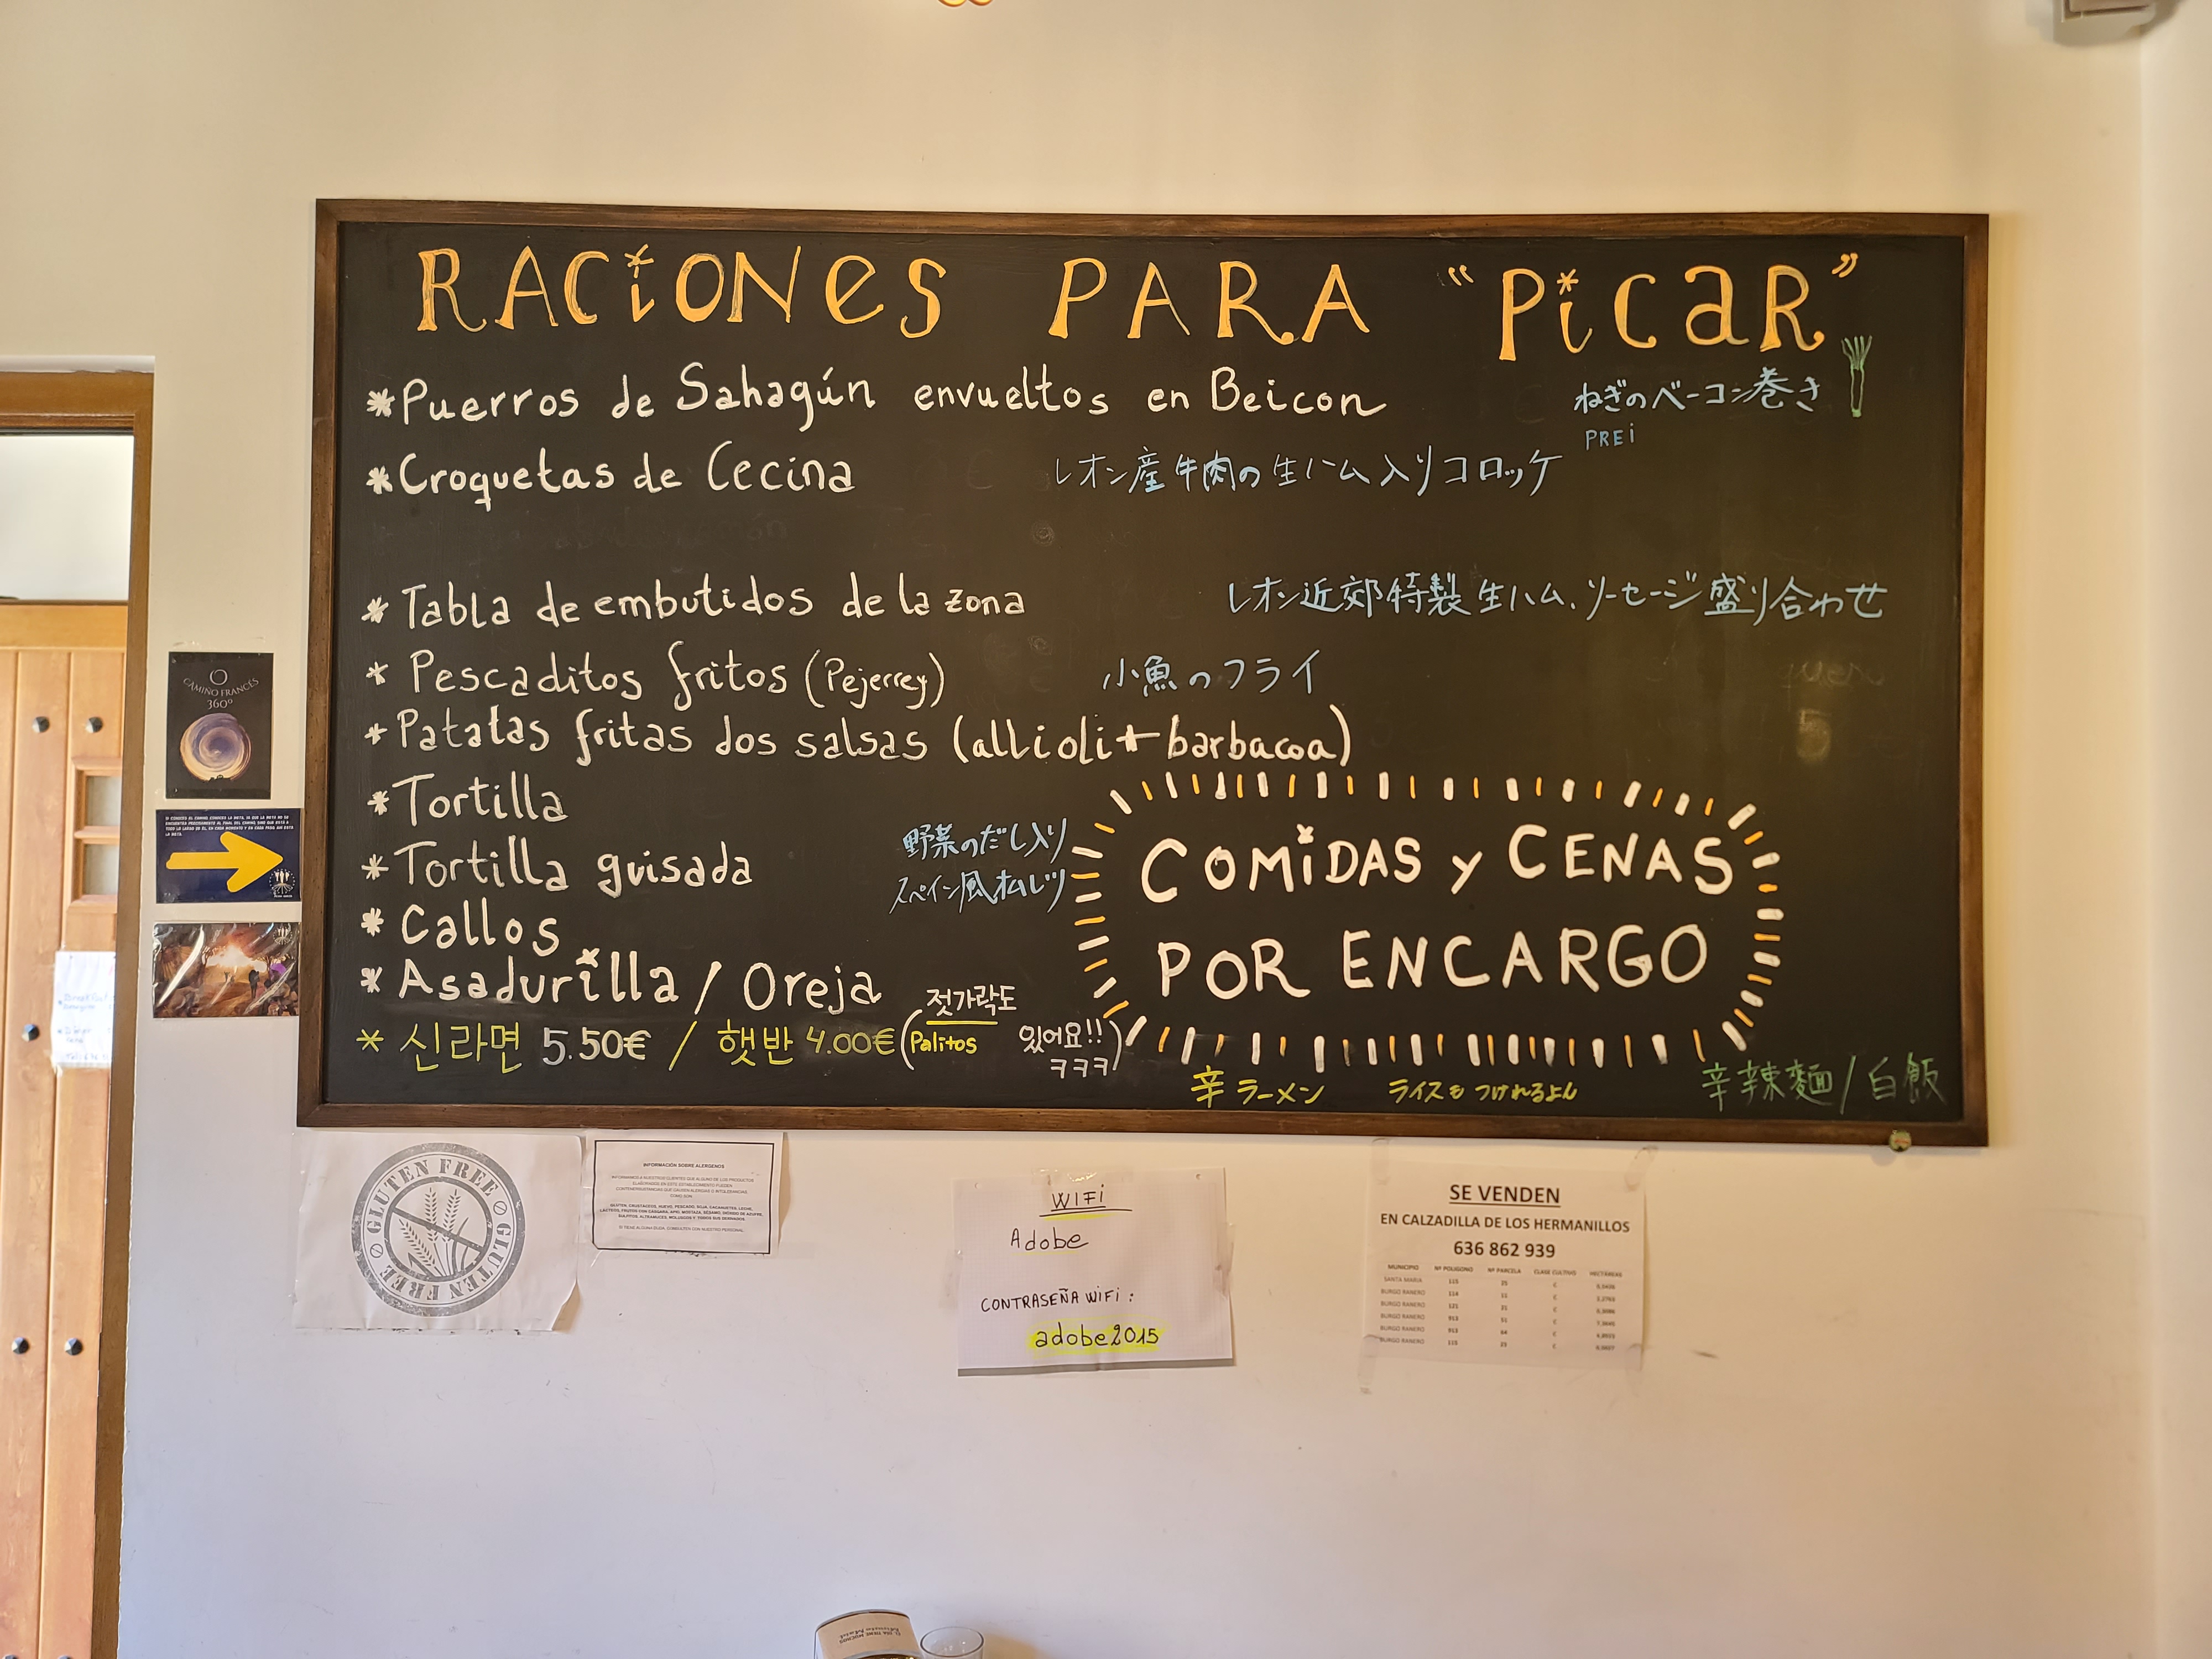 RACiONeS PARA "PicaR"
*Puerros de Sahagún envueltos en Beicon ねぎのベーコン巻き
PREi
*Croquetas de Cecina レオン産牛肉の生ハム入りコロッケ
* Tabla de embutidos de la zona レオン近郊特製生ハム、ソーセージ盛り合わせ
* Pescaditos fritos (Pejerrey) 小魚のフライ
* Patatas fritas dos salsas (allioli + barbacoa)
* Tortilla
* Tortilla guisada 野菜のだし入り
スペイン風オムレツ
* Callos
* Asadurilla / Oreja
* 신라면 5.50€ / 햇반 4.00€ (Palitos 젓가락도
있어요!!
ㅋㅋㅋ)
COMiDAS y CENAS
POR ENCARGO
辛ラーメン ライスもつけれるよん 辛辣麵/白飯
CAMIÑO FRANCÉS
360º
GLUTEN FREE GLUTEN FREE
INFORMACIÓN SOBRE ALERGENOS
WIFi
Adobe
CONTRASEÑA WiFi:
adobe2015
SE VENDEN
EN CALZADILLA DE LOS HERMANILLOS
636 862 939
MUNICIPIO Nº POLIGONO Nº PARCELA CLASE CULTIVO HECTÁREAS
SANTA MARIA 115 25 C
BURGO RANERO 114 11 C
BURGO RANERO 121 21 C
BURGO RANERO 913 51 C
BURGO RANERO 913 64 C
BURGO RANERO 115 23 C